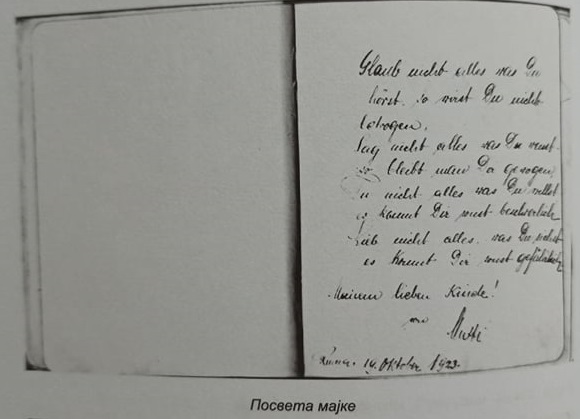 Glaub nicht alles was Du
hörst, so wirst Du nicht
betrogen.
Sag nicht alles was Du weist
so bleibt man Dir gewogen
Tu nicht alles was Du willst
es kommt Dir sonst beschwerlich
Lieb nicht alles, was Du siehst
es kommt Dir sonst gefährlich
Meinem lieben Kinde!
von
Mutti
14. Oktober 1923.
Посвета мајке